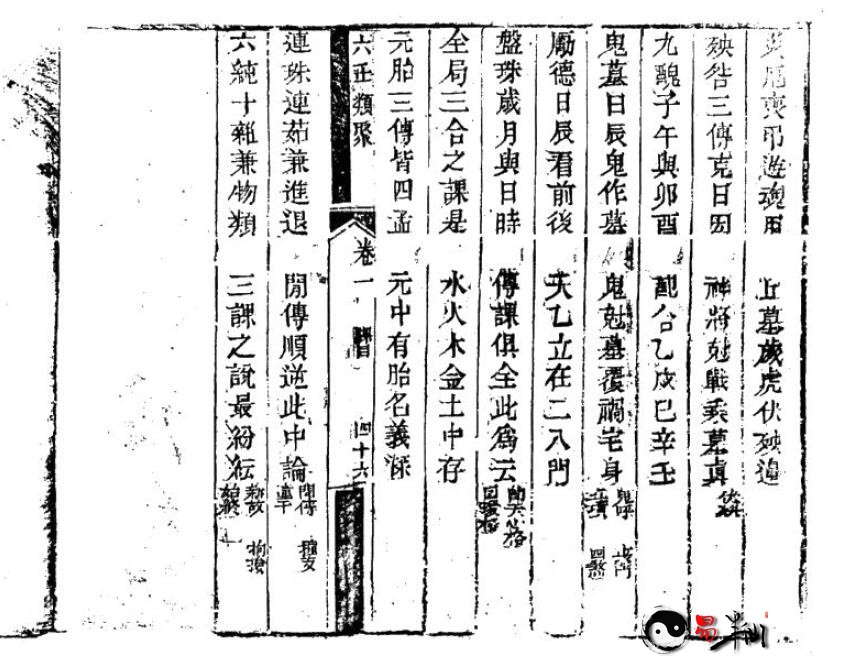 喪吊遊魂用 丘墓歲虎伏殃迫
殃咎三傳克日因 神將尅戰乘墓眞
九醜子午與卯酉 配合乙戊己辛壬
鬼墓日辰鬼作墓 鬼尅墓覆禍宅身
勵德日辰看前後 天乙立在二八門
盤珠歲月與日時 傳課俱全此爲云 天心格 回環格
全局三合之課是 水火木金土中存
元胎三傳皆四孟 元中有胎名義深
六壬類聚 卷一 四十六
連珠連茹兼進退 間傳順逆此中論 間傳
六純十雜兼物類 三課之說最紛紜 物類
易羊山